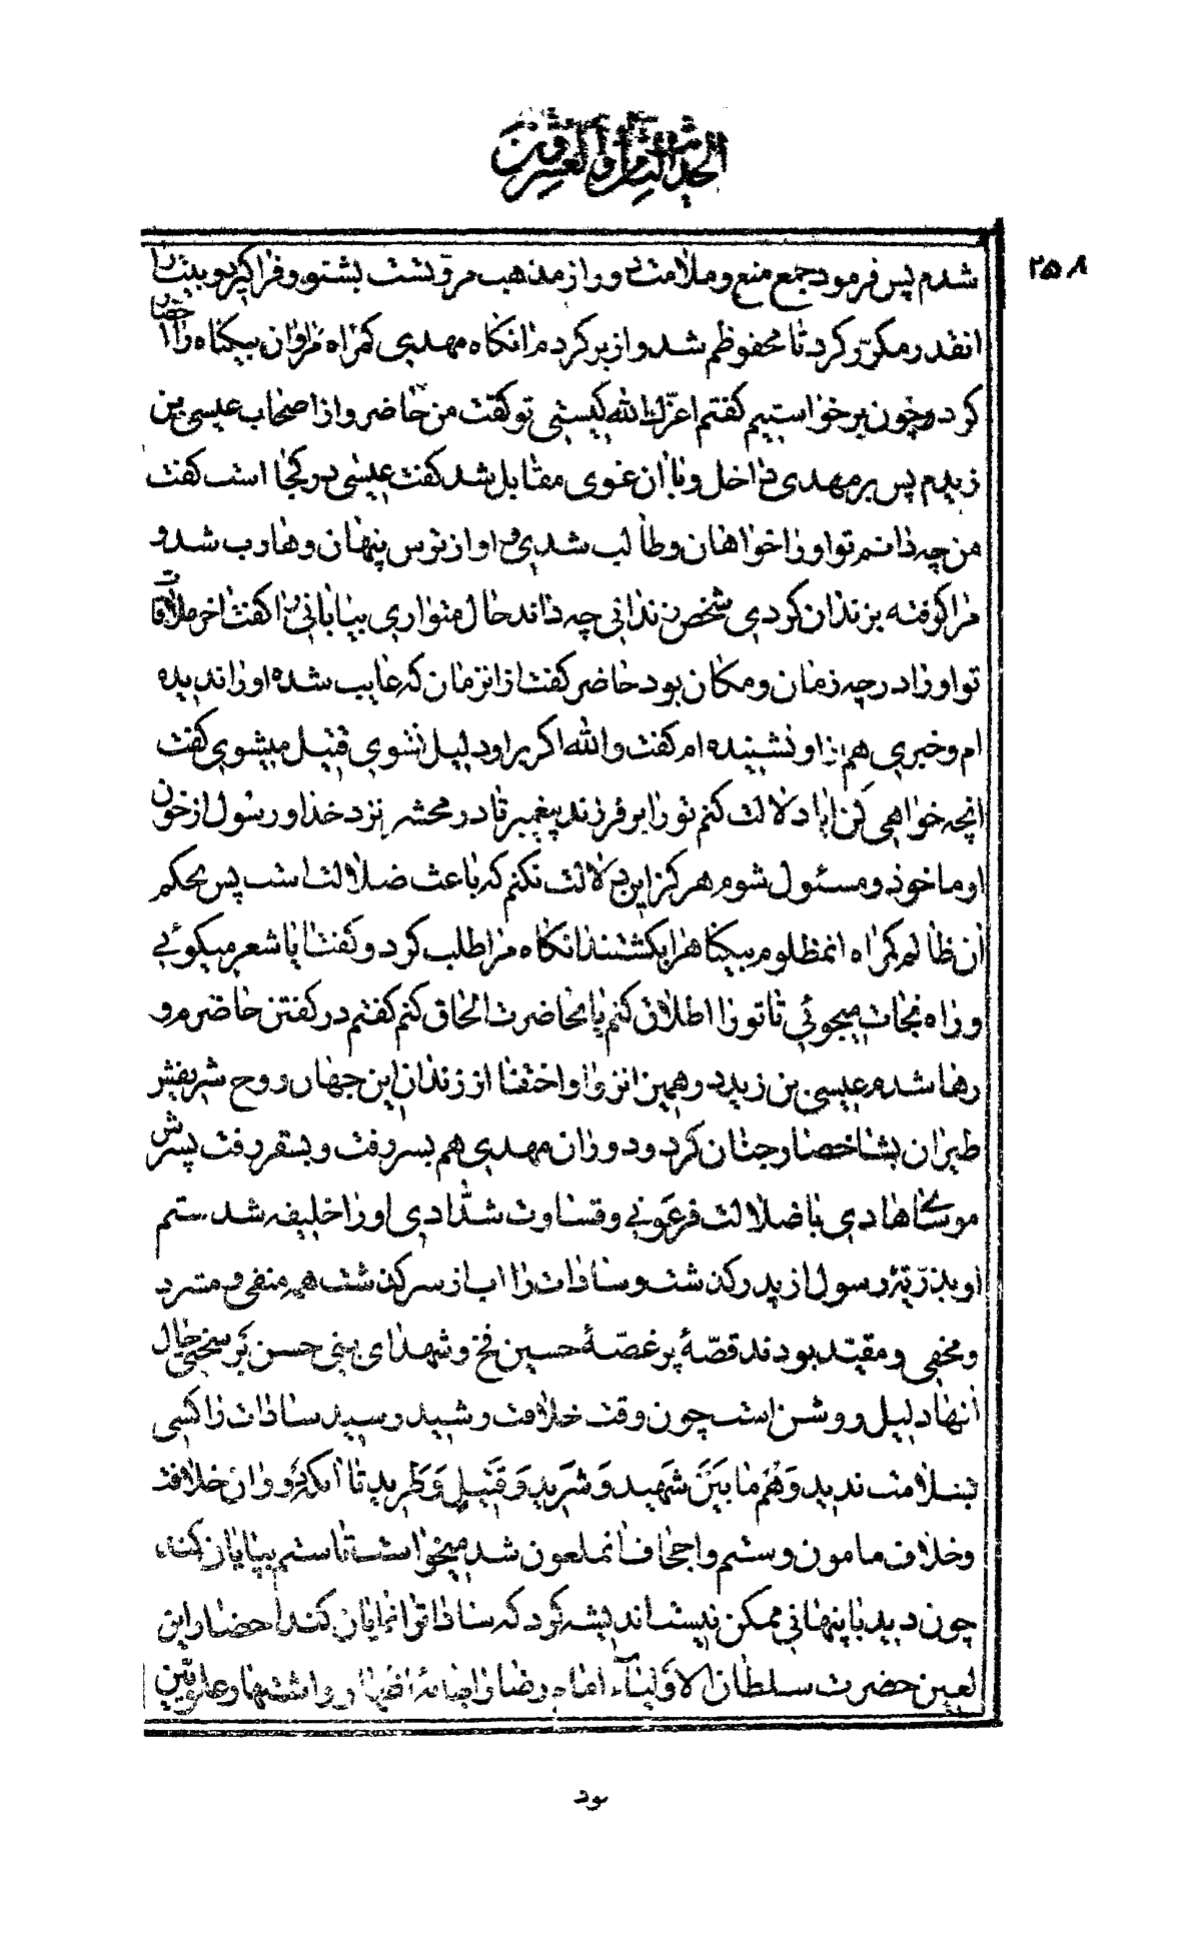 الحدیث الثامن والعشرون
۲۵۸
شدم پس فرمود جمع منع و ملامت دور از مذهب مروّتست بشنو و فراگیر دو بیت را
انقدر مکرّر کرد تا محفوظم شد و از بر کردم انگاه مهدی گمراه مرا وان بیگناه را احضار
کرد و چون برخواستیم گفتم اعزّک الله کیستی تو گفت من حاضر و از اصحاب عیسی بن
زیدم پس بر مهدی داخل و با ان غوی مقابل شد گفت عیسی در کجا است گفت
من چه دانم تو او را خواهان و طالب شدی و او از ترس پنهان و هارب شد و
مرا گرفته بزندان کردی شخص زندانی چه داند حال متواری بیابانی را گفت اخر ملاقات
تو او را در چه زمان و مکان بود حاضر گفت از انزمان که غایب شده او را ندیده
ام و خبری هم از او نشنیده ام گفت والله اگر بر او دلیل نشوی قتیل میشوی گفت
انچه خواهی کن ایا دلالت کنم تو را بر فرزند پیغمبر تا در محشر نزد خدا و رسول از خون
او ماخوذ و مسئول شوم هرگز این دلالت نکنم که باعث ضلالت است پس بحکم
ان ظالم گمراه انمظلوم بیگناه را بکشتند انگاه مرا طلب کرد و گفت ایا شعر میگوئی
و راه نجات میجوئی تا تو را اطلاق کنم یا بحاضرت الحاق کنم گفتم در گفتن حاضرم و
رها شدم عیسی بن زید در همین انزوا و اختفا از زندان این جهان روح شریفش
طیران بشاخصار جنان کرد و دوران مهدی هم بسر رفت و بسقر رفت پسرش
موسی هادی با ضلالت فرعونی و قساوت شدّادی او را خلیفه شد ستم
او بذرّیّهٔ رسول از پدر گذشت و سادات را اب از سر گذشت همه منفی و مترد
و مخفی و مقیّد بودند قصّهٔ پر غصّهٔ حسین فخ و شهدای بنی حسن بر سختی حال
انها دلیل روشن است چون وقت خلافت رشید رسید سادات را کسی
بسلامت ندید وَهُم مابَیْنَ شَهید وَشَرِید وَقَتیل وَطَرِید تا انکه دوران خلافت
و خلاف مامون و ستم و اجحاف انملعون شد میخواست تا ستم بپایان کند
چون دید با پنهانی ممکن نیست اندیشه نمود که سادات را نمایان کند احضار این
لعین حضرت سلطان الاولیاء امام رضا را بهانهٔ اظهار و اشتهار علویّین
بود